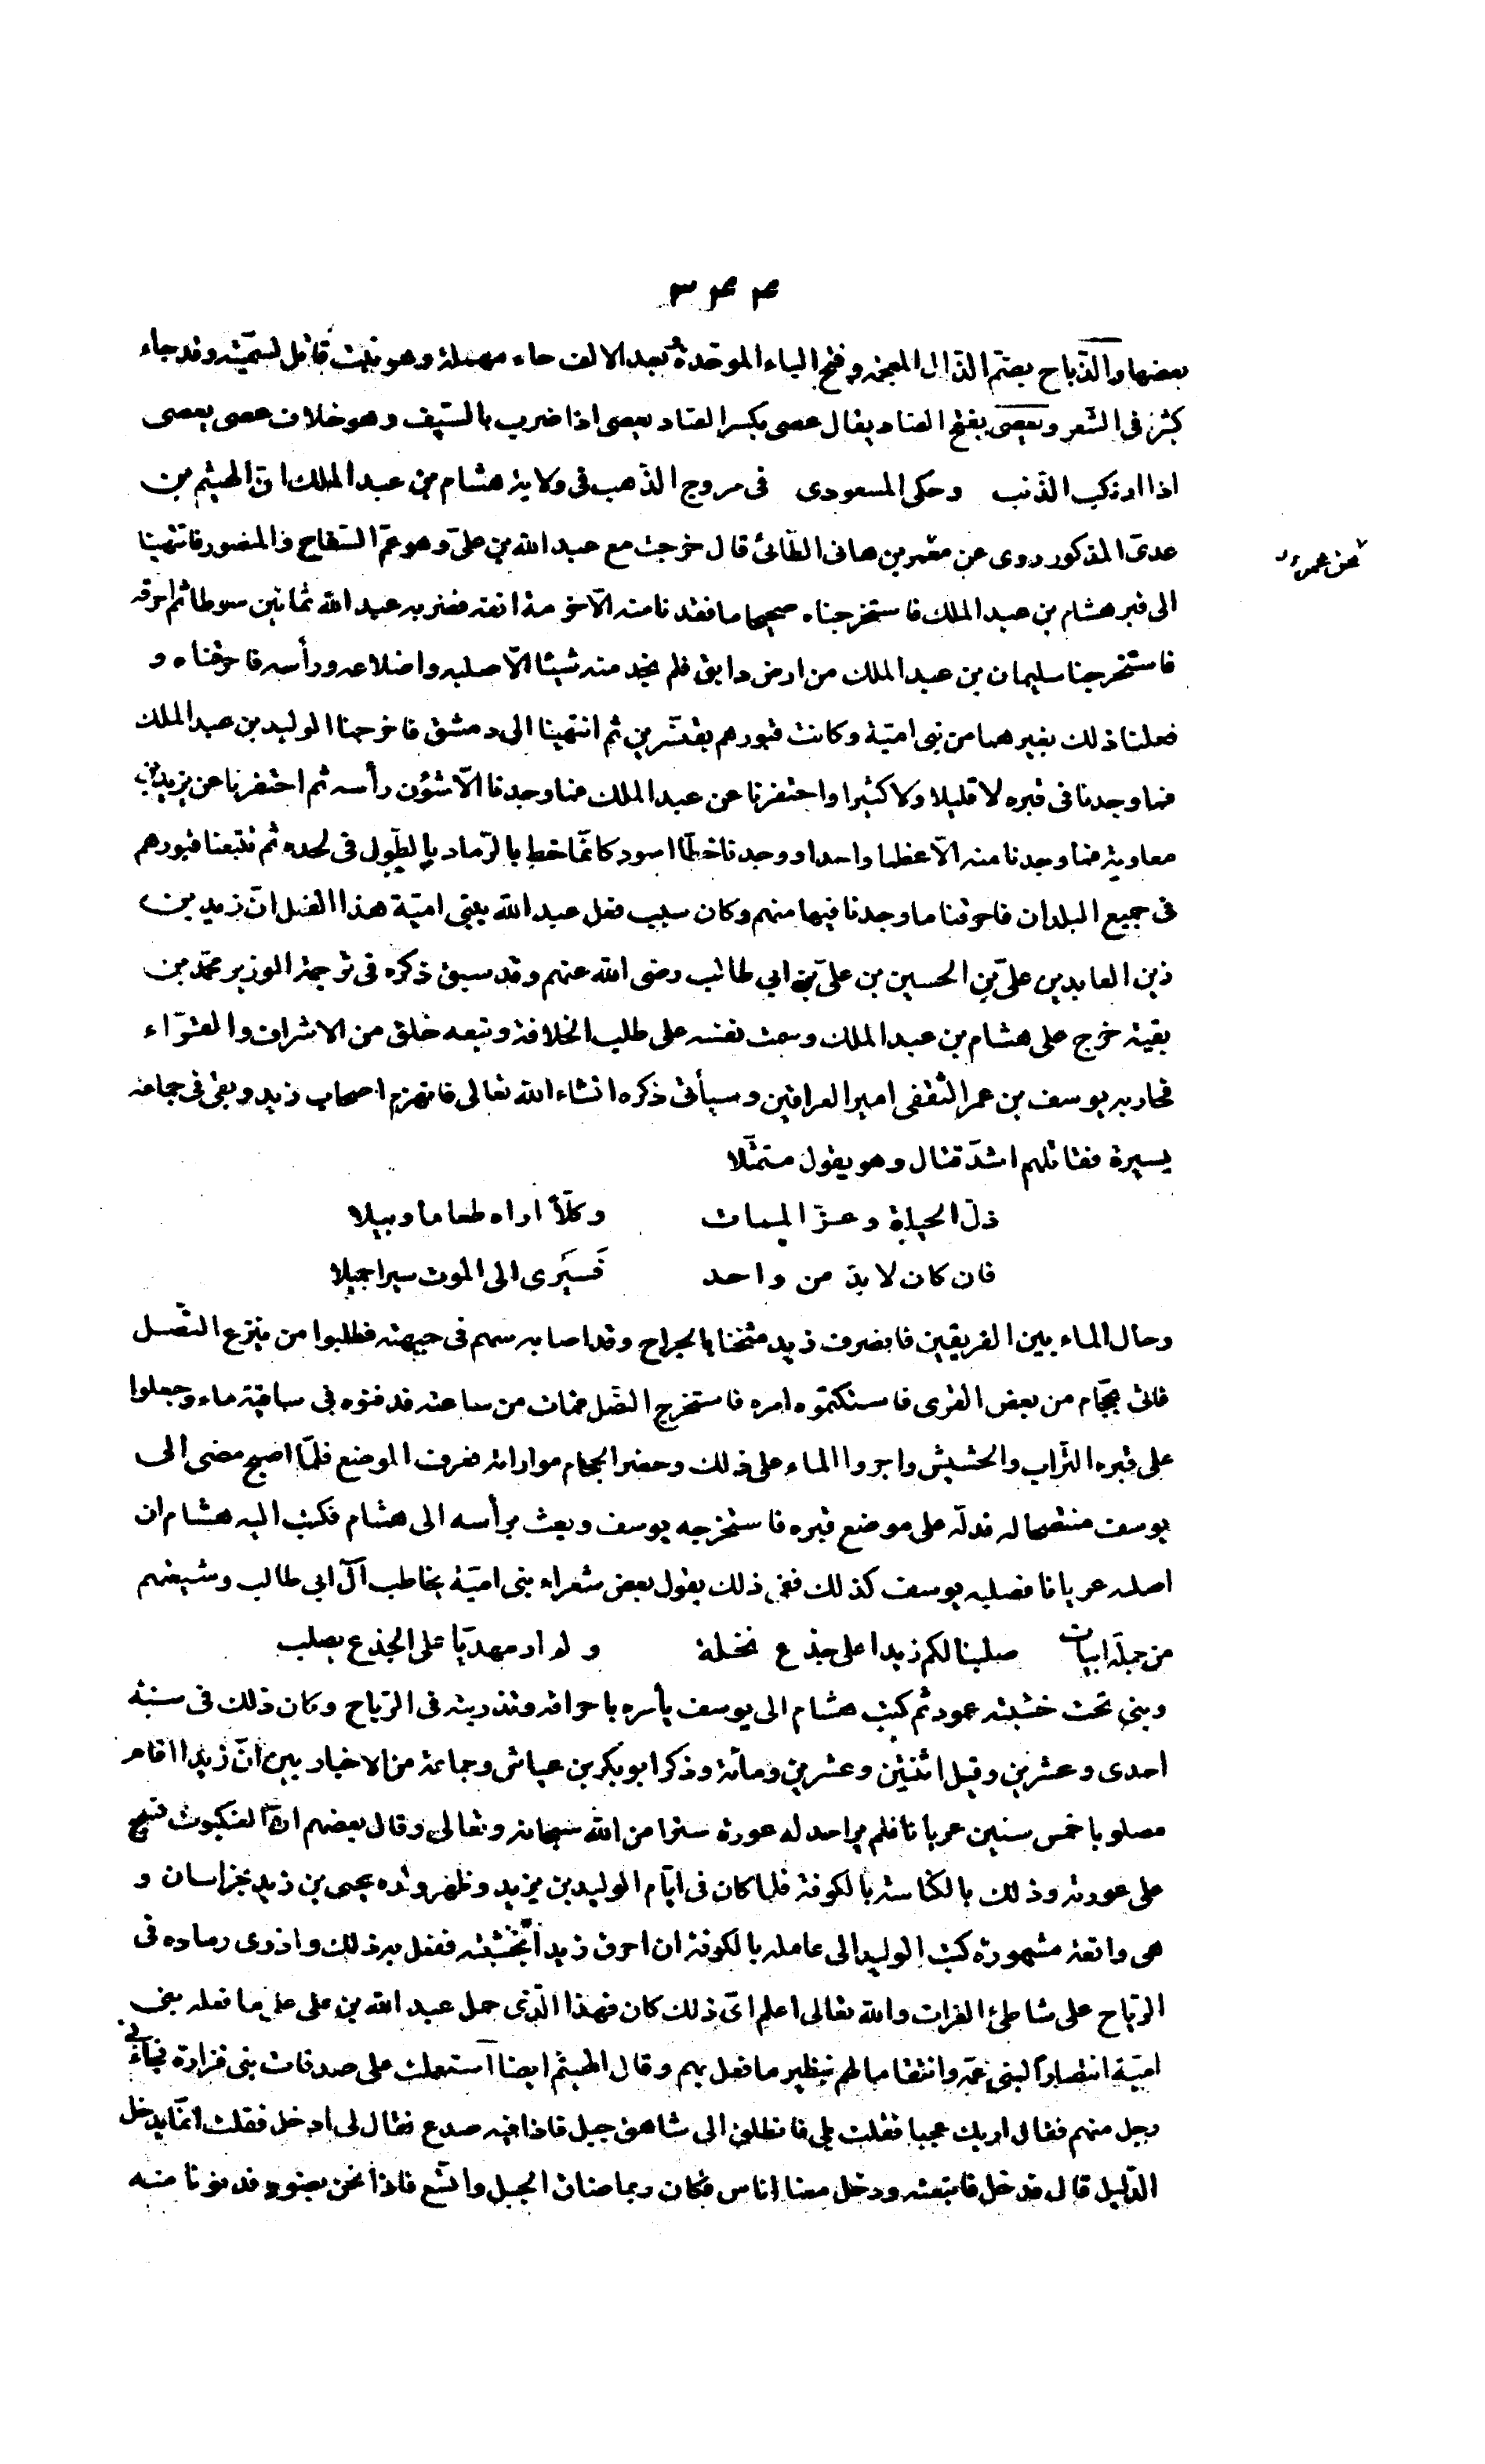 ٣٤٤
بعضها والذّباح بضمّ الذّال المعجمة وفتح الباء الموحّدة وبعد الالف حاء مهملة وهو نبت قاتل لسمّيته وقد جاء
كثيرا فى الشعر ويعصى بفتح الصاد يقال عصى بكسر الصاد يعصى اذا ضرب بالسّيف وهو خلاف عصى يعصى
اذا ارتكب الذّنب وحكى المسعودى فى مروج الذّهب فى ولاية هشام بن عبد الملك انّ الهيثم بن
عدىّ المذكور روى عن معمر بن هانى الطّائى قال خرجت مع عبد الله بن علىّ وهو عمّ السّفاح والمنصور فانتهينا
عن عمرو
الى قبر هشام بن عبد الملك فاستخرجناه صحيحا ما فقدنا منه الّا خرمة انفه فضربه عبد الله ثمانين سوطا ثم احرقه
فاستخرجنا سليمان بن عبد الملك من ارض دابق فلم نجد منه شيئا الّا صلبه واضلاعه ورأسه فاحرقناه و
فعلنا ذلك بغيرهما من بنى اميّة وكانت قبورهم بقنّسرين ثم انتهينا الى دمشق فاخرجنا الوليد بن عبد الملك
فما وجدنا فى قبره لا قليلا ولا كثيرا واحتفرنا عن عبد الملك فما وجدنا الّا شؤن رأسه ثم احتفرنا عن يزيد بن
معاوية فما وجدنا منه الّا عظما واحدا ووجدنا خطّا اسود كانّما خط بالرّماد بالطّول فى لحده ثم تتبعنا قبورهم
فى جميع البلدان فاحرقنا ما وجدنا فيها منهم وكان سبب فعل عبد الله ببنى اميّة هذا الفعل انّ زيد بن
زين العابدين علىّ بن الحسين بن علىّ بن ابي طالب رضى الله عنهم وقد سبق ذكره فى ترجمة الوزير محمّد بن
بقية خرج على هشام بن عبد الملك وسمت نفسه على طلب الخلافة وتبعه خلق من الاشراف والقرّاء
فحاربه يوسف بن عمر الثقفى امير العراقين وسيأتى ذكره انشاء الله تعالى فانهزم اصحاب زيد وبقى فى جماعة
يسيرة فقاتلهم اشدّ قتال وهو يقول متمثّلا
ذلّ الحياة وعزّ الممات وكلّا اراه طعاما وبيلا
فان كان لا بدّ من واحد فَسيْرى الى الموت سيرا جميلا
وحال الماء بين الفريقين فانصرف زيد مثخنا بالجراح وقد اصابه سهم فى جبهته فطلبوا من ينزع النّصل
فاتى بحجّام من بعض القرى فاستكتموه امره فاستخرج النصّل فمات من ساعته فدفنوه فى ساقية ماء وجعلوا
على قبره التّراب والحشيش واجروا الماء على ذلك وحضر الحجام مواراته فعرف الموضع فلمّا اصبح مضى الى
يوسف منتصحا له فدلّه على موضع قبره فاستخرجه يوسف وبعث برأسه الى هشام فكتب اليه هشام ان
اصلبه عريانا فصلبه يوسف كذلك ففى ذلك يقول بعض شعراء بنى اميّة يخاطب آل ابي طالب وشيعتهم
من جملة ابيات صلبنا لكم زيدا على جذع نخلة ولم ار مهديّا على الجذع يصلب
وبنى تحت خشبته عمود ثم كتب هشام الى يوسف يأمره باحراقه وتذريته فى الرّياح وكان ذلك فى سنة
احدى وعشرين وقيل اثنتين وعشرين ومائة وذكر ابو بكر بن عياش وجماعة من الاخباريين انّ زيدا اقام
مصلوبا خمس سنين عريانا فلم ير احد له عورة سترا من الله سبحانه وتعالى وقال بعضهم انّ العنكبوت نسج
على عورته وذلك بالكنّاسة بالكوفة فلما كان فى ايّام الوليد بن يزيد وظهر ولده يحيى بن زيد بخراسان و
هى واقعة مشهورة كتب الوليد الى عامله بالكوفة ان احرق زيدا بخشبته ففعل به ذلك واذرى رماده فى
الرّياح على شاطئ الفرات والله تعالى اعلم اىّ ذلك كان فهذا الّذى حمل عبد الله بن على على ما فعله ببنى
اميّة انتصارا لبنى عمّه وانتقاما لهم بنظير ما فعل بهم وقال الهيثم ايضا استعملت على صدقات بنى فزارة فجاءنى
رجل منهم فقال اريك عجبا فقلت بلى فانطلق الى شاهق جبل فاذا فيه صدع فقال لى ادخل فقلت انّما يدخل
الدّليل قال فدخل فاتبعته ودخل معنا اناس فكان ربما ضاق الجبل واتّسع فاذا نحن بضوء فدنونا منه